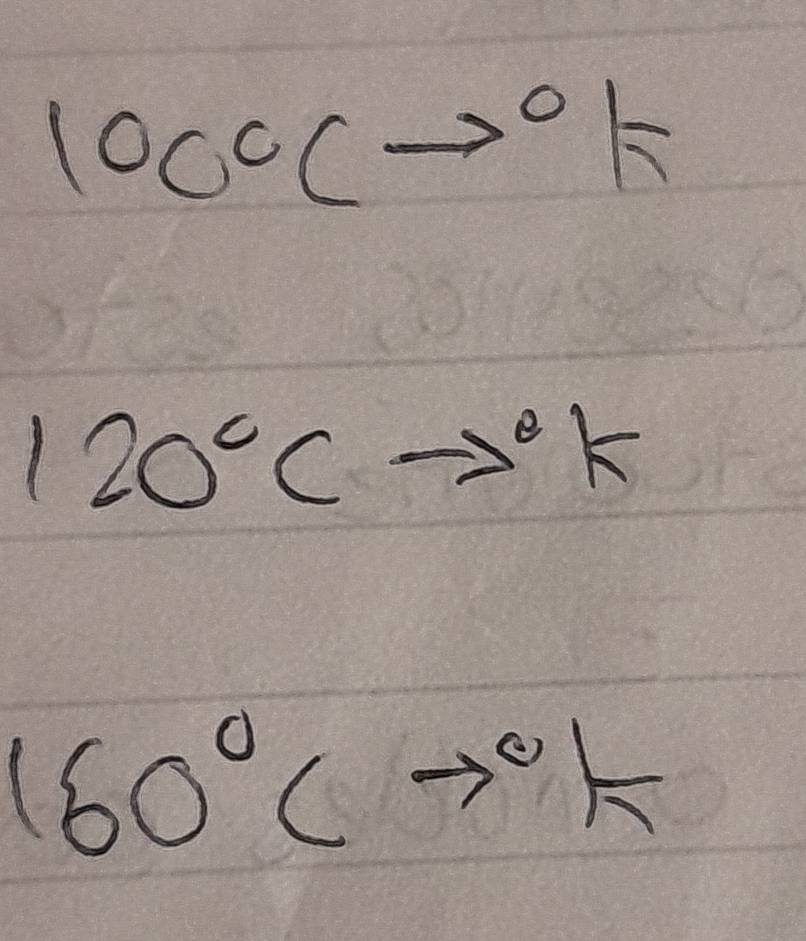 100°C → °K
120°C → °K
160°C → °K